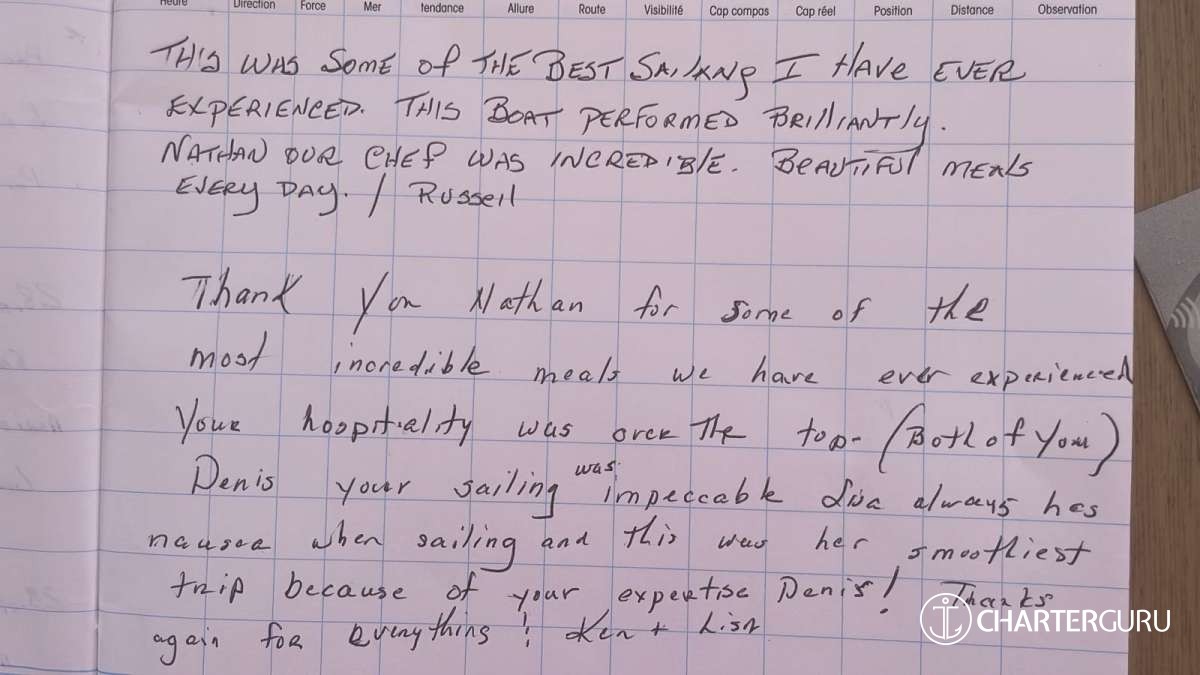 Heure Direction Force Mer tendance Allure Route Visibilité Cap compas Cap réel Position Distance Observation
THIS WAS SOME of THE BEST SAILING I HAVE EVER
EXPERIENCED. THIS BOAT PERFORMED BRILLIANTLY.
NATHAN OUR CHEF WAS INCREDIBLE. BEAUTIFUL MEALS
EVERY DAY. / RUSSELL
Thank You Nathan for some of the
most incredible meals we have ever experienced
Your hospitality was over the top- (Both of You)
was
Denis your sailing impeccable Lisa always has
nausea when sailing and this was her smoothiest
trip because of your expertise Denis! Thanks
again for everything! Ken + Lisa
CHARTERGURU